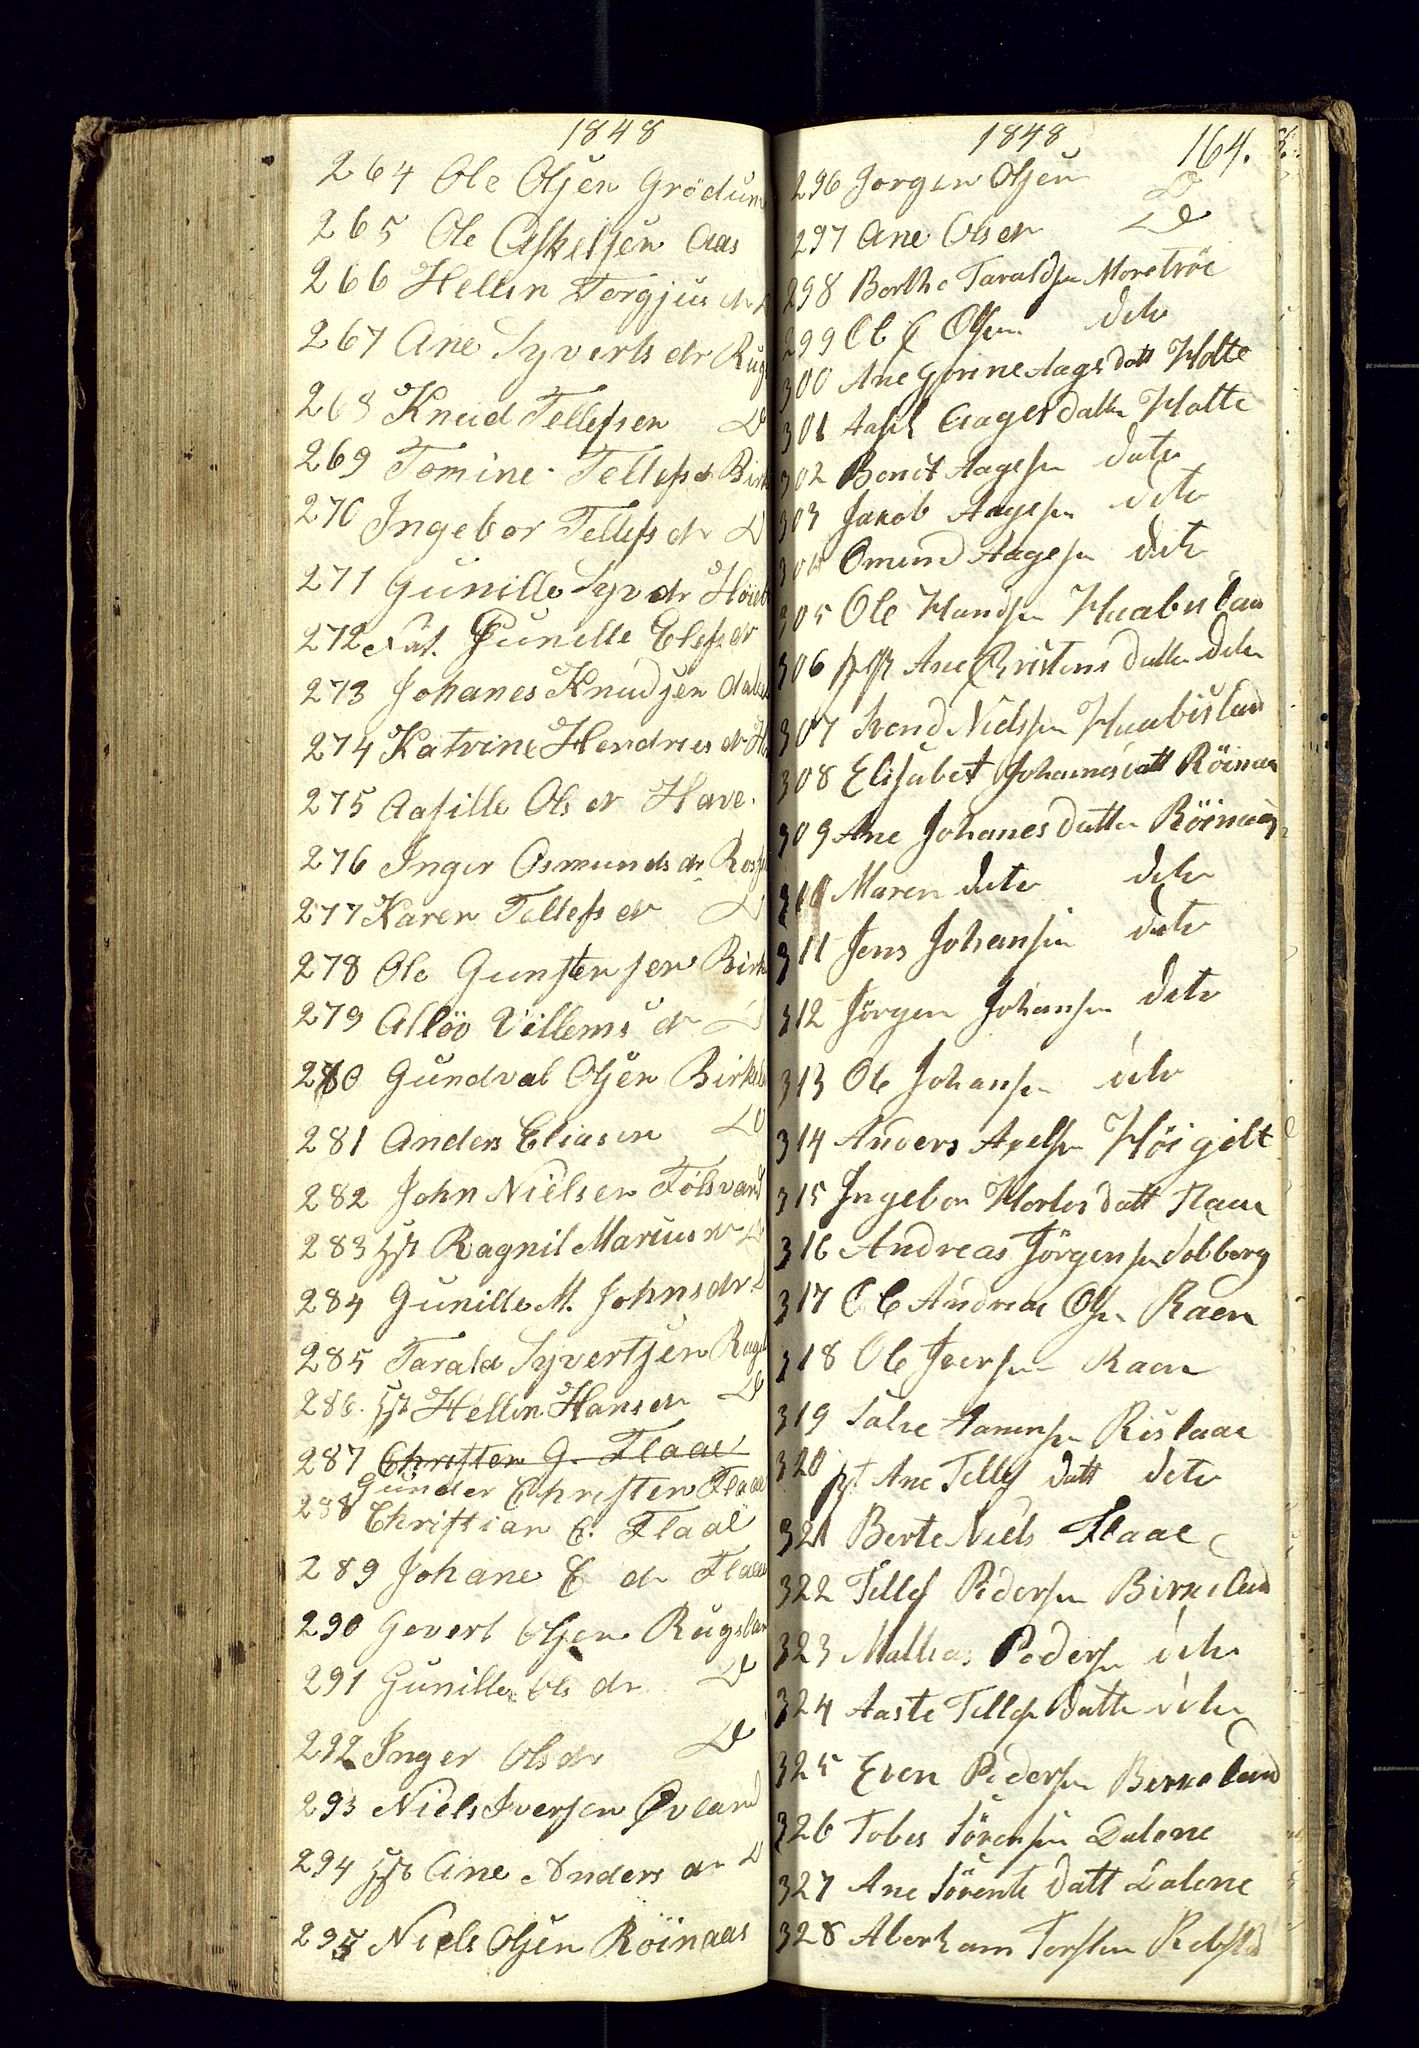 1848
264 Ole Olsen Grödum
265 Ole Askelsen Aas
266 Hellen Torgjus dr
267 Ane Syverts dr Rug
268 Knud Tellefsen Do
269 Tomine Tellefs dr Birk
270 Ingebor Tellefs dr Do
271 Gunille Syv dr
272 Gunille Elefs dr
273 Johanes Knudsen
274 Katrine Hendries dr
275 Aasille Ols dr Have
276 Inger Osmunds dr
277 Karen Tellefs dr Do
278 Ole Gunstensen Birk
279 Asløv Villems dr Do
280 Gundval Olsen Birkel
281 Anders Eliasen Do
282 John Nielsen Fölsvand
283 Ragnil Marius dr Do
284 Gunille M. Johnsdr
285 Tarald Syvertsen Rugl
286 Hellen Hans dr Do
287 Christen G. Flaae
Gunder Christen Flaae
288 Christian C. Flaae
289 Johane C dr Flaae
290 Govert Olsen Rugslan
291 Gunille Ols dr Do
292 Inger Ols dr Do
293 Niels Iversen Øvland
294 Ane Anders dr Do
295 Niels Olsen Röinaas
1848
164.
296 Jorgen Olsen Do
297 Ane Ols dr Do
298 Borthe Taraldsen Moretröe
299 Ole C Olsen deto
300 Ane Gorine Aags datt Holte
301 Aasil Aagesdatter Holte
302 Bendt Aagesen deto
303 Jakob Aagesen deto
304 Omund Aagesen deto
305 Ole Handsen Haabesland
306 Ane Cristens datter deto
307 Svend Nielsen Haabisland
308 Elisabet Johanesdatt Röinaas
309 Ane Johanesdatter Röinaas
310 Maren deto deto
311 Jens Johansen deto
312 Jörgen Johansen deto
313 Ole Johansen deto
314 Anders Axelsen Höigilt
315 Ingebor Horlosdatt Flaae
316 Andreas Jörgensen Dobberg
317 Ole Andreas Olsen Raen
318 Ole Iversen Raen
319 Salve Aanensen Rislaae
320 Ane Tellefs datt deto
321 Berte Niels Flaae
322 Tellef Pedersen Birkeland
323 Mathias Pedersen deto
324 Aaste Tellefs datter deto
325 Even Pedersen Birkeland
326 Tobes Sörensen Dalene
327 Ane Sörents datt Dalene
328 Aberham Torsten